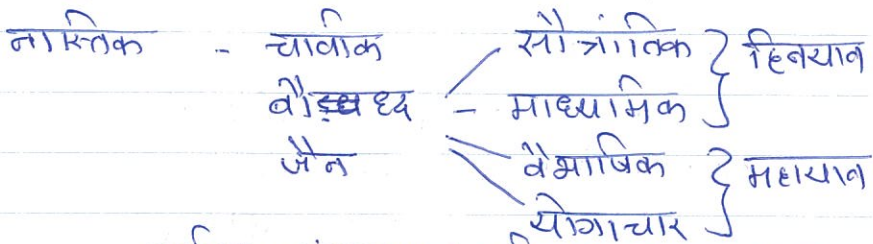 नास्तिक - चार्वाक सौत्रांतिक } हिनयान
बौद्ध - माध्यामिक
जैन वैभाषिक } महायान
योगाचार